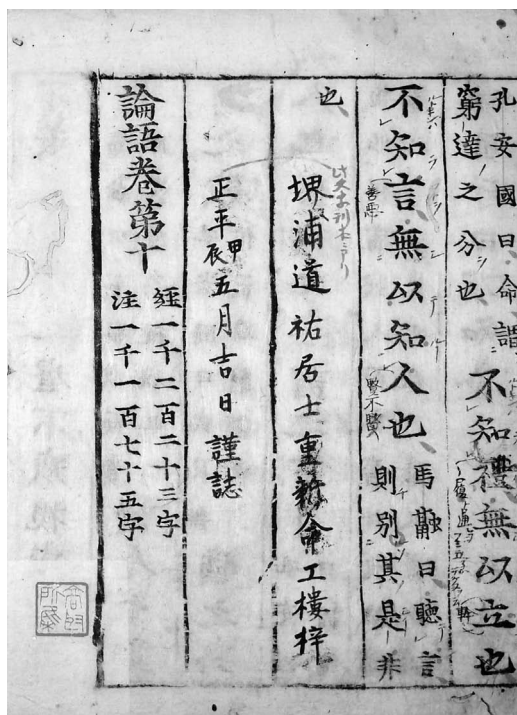 孔安國曰命謂
窮達之分也
不知禮無以立也
不知言無以知人也
馬融曰聽言
則別其是非
也
堺浦道祐居士重新命工鏤梓
正平甲辰五月吉日謹誌
論語卷第十
經一千二百二十三字
注一千一百七十五字
善悪